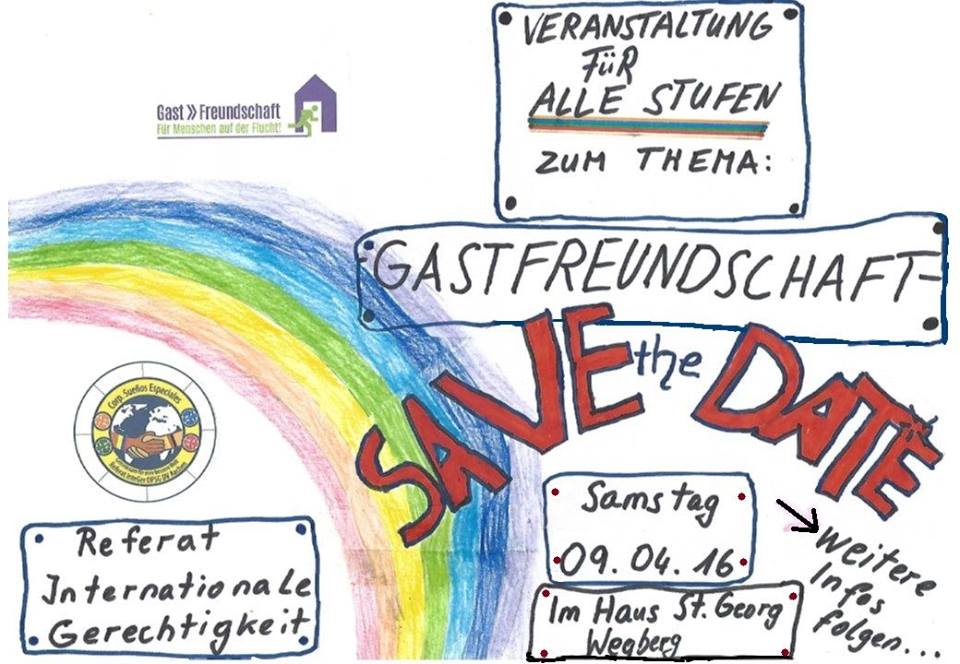 VERANSTALTUNG
FüR
ALLE STUFEN
ZUM THEMA:
Gast » Freundschaft
Für Menschen auf der Flucht!
-GASTFREUNDSCHAFT-
SAVE the DATE
Corp. Sueños Especiales
Referat InterGer DPSG DV Aachen
Samstag
09.04.16
Im Haus St. Georg
Wegberg
Weitere
Infos
folgen...
Referat
Internationale
Gerechtigkeit